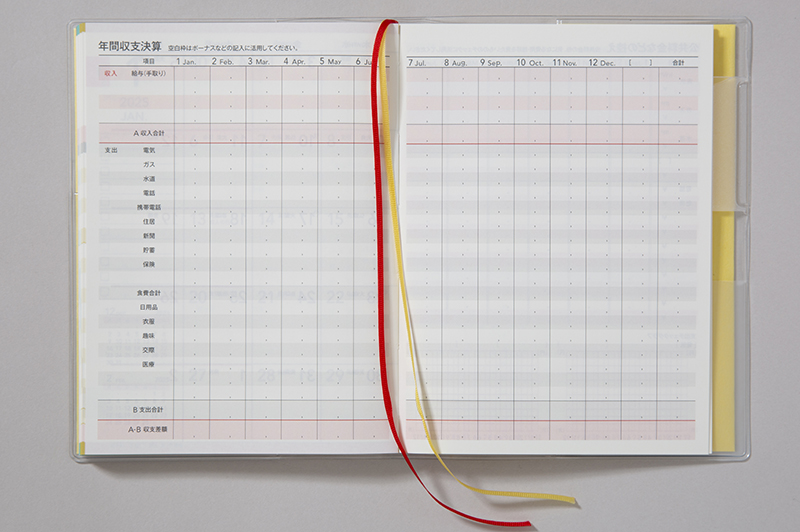 年間収支決算 空白枠はボーナスなどの記入に活用してください。
項目 1 Jan. 2 Feb. 3 Mar. 4 Apr. 5 May 6 Ju 7 Jul. 8 Aug. 9 Sep. 10 Oct. 11 Nov. 12 Dec. [ ] 合計
収入 給与(手取り)
A 収入合計
支出 電気
ガス
水道
電話
携帯電話
住居
新聞
貯蓄
保険
食費合計
日用品
衣服
趣味
交際
医療
B 支出合計
A-B 収支差額